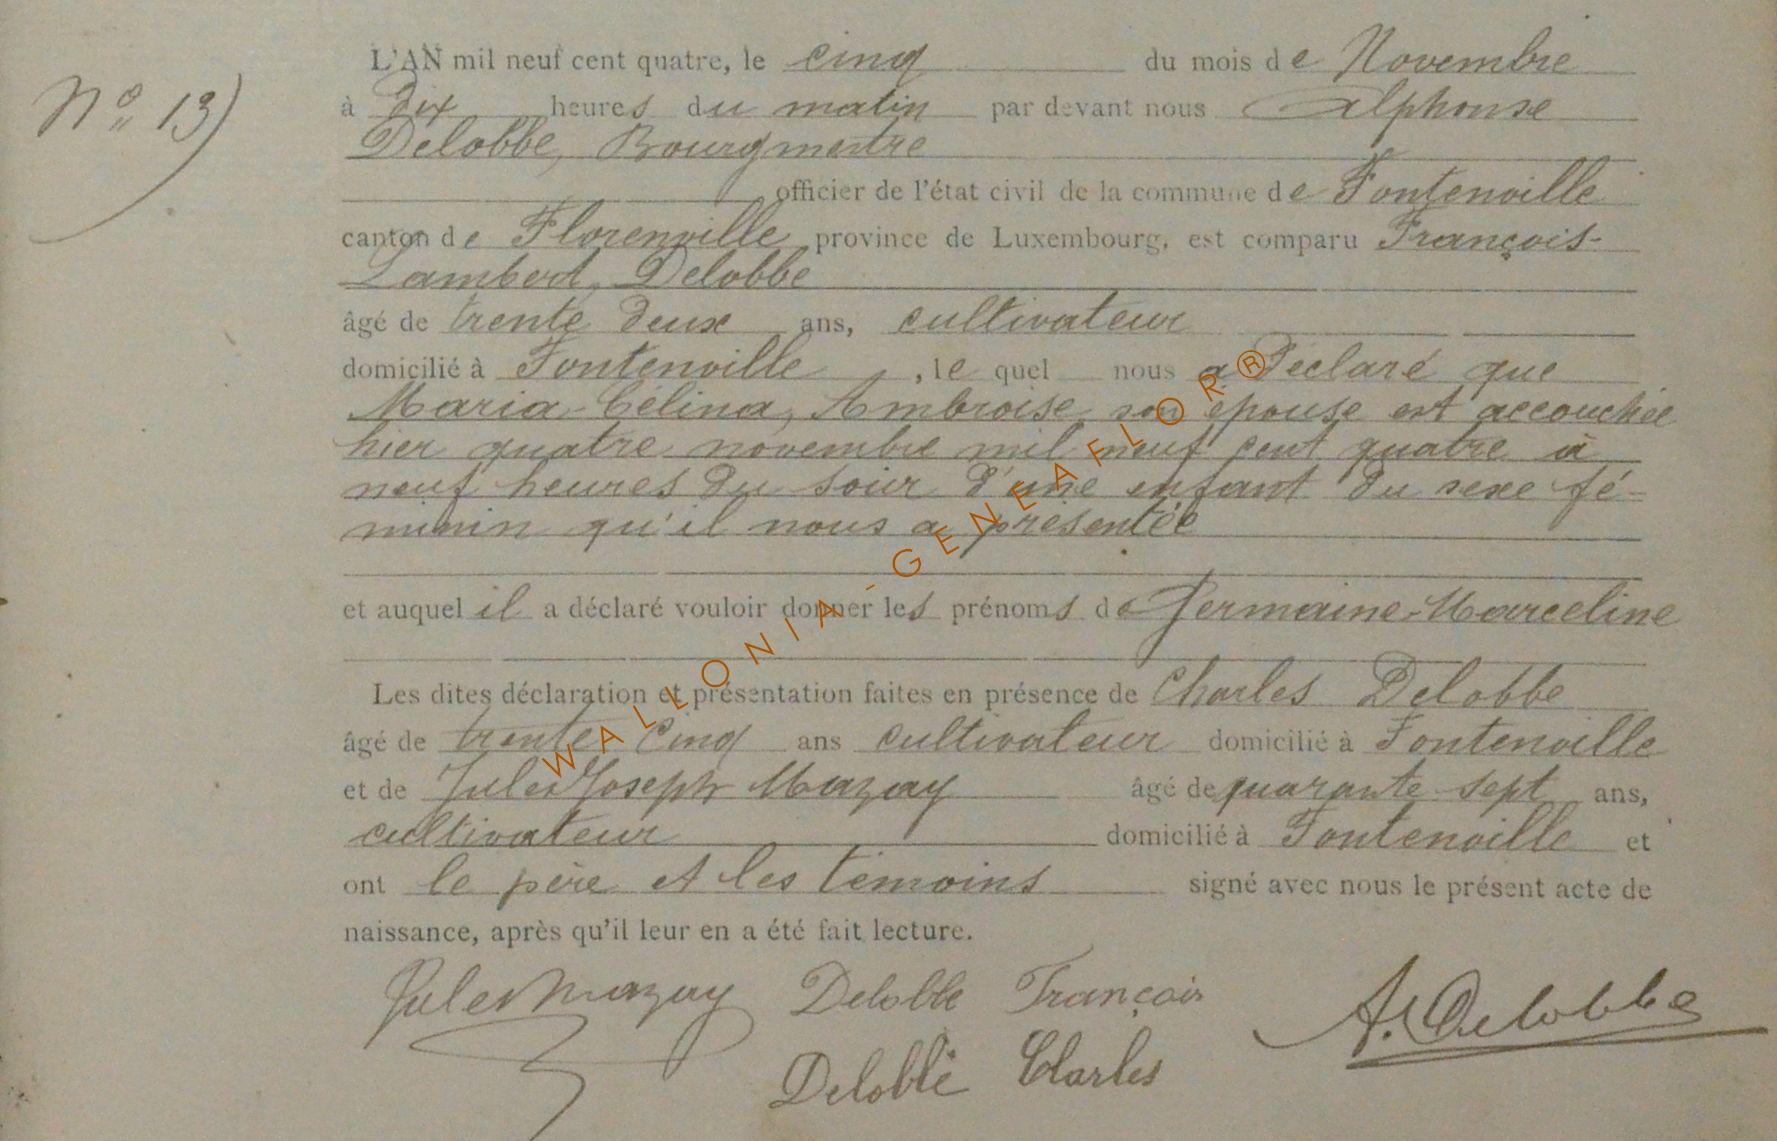 N° 13)
L'AN mil neuf cent quatre, le cinq du mois de Novembre
à dix heures du matin par devant nous Alphonse
Delobbe, Bourgmestre
officier de l'état civil de la commune de Fontenoille
canton de Florenville province de Luxembourg, est comparu François-
Lambert Delobbe
âgé de trente deux ans, cultivateur
domicilié à Fontenoille, le quel nous a déclaré que
Maria-Célina, Ambroise son épouse est accouchée
hier quatre novembre mil neuf cent quatre à
neuf heures du soir d'une enfant du sexe fé=
minin qu'il nous a présentée
et auquel il a déclaré vouloir donner les prénoms de Germaine-Marceline
Les dites déclaration et présentation faites en présence de Charles Delobbe
âgé de trente cinq ans cultivateur domicilié à Fontenoille
et de Jules Joseph Mazay âgé de quarante sept ans,
cultivateur domicilié à Fontenoille et
ont le père et les témoins signé avec nous le présent acte de
naissance, après qu'il leur en a été fait lecture.
Jules Mazay Delobbe François A. Delobbe
Delobbe Charles
WALLONIA-GENEAFLOR®